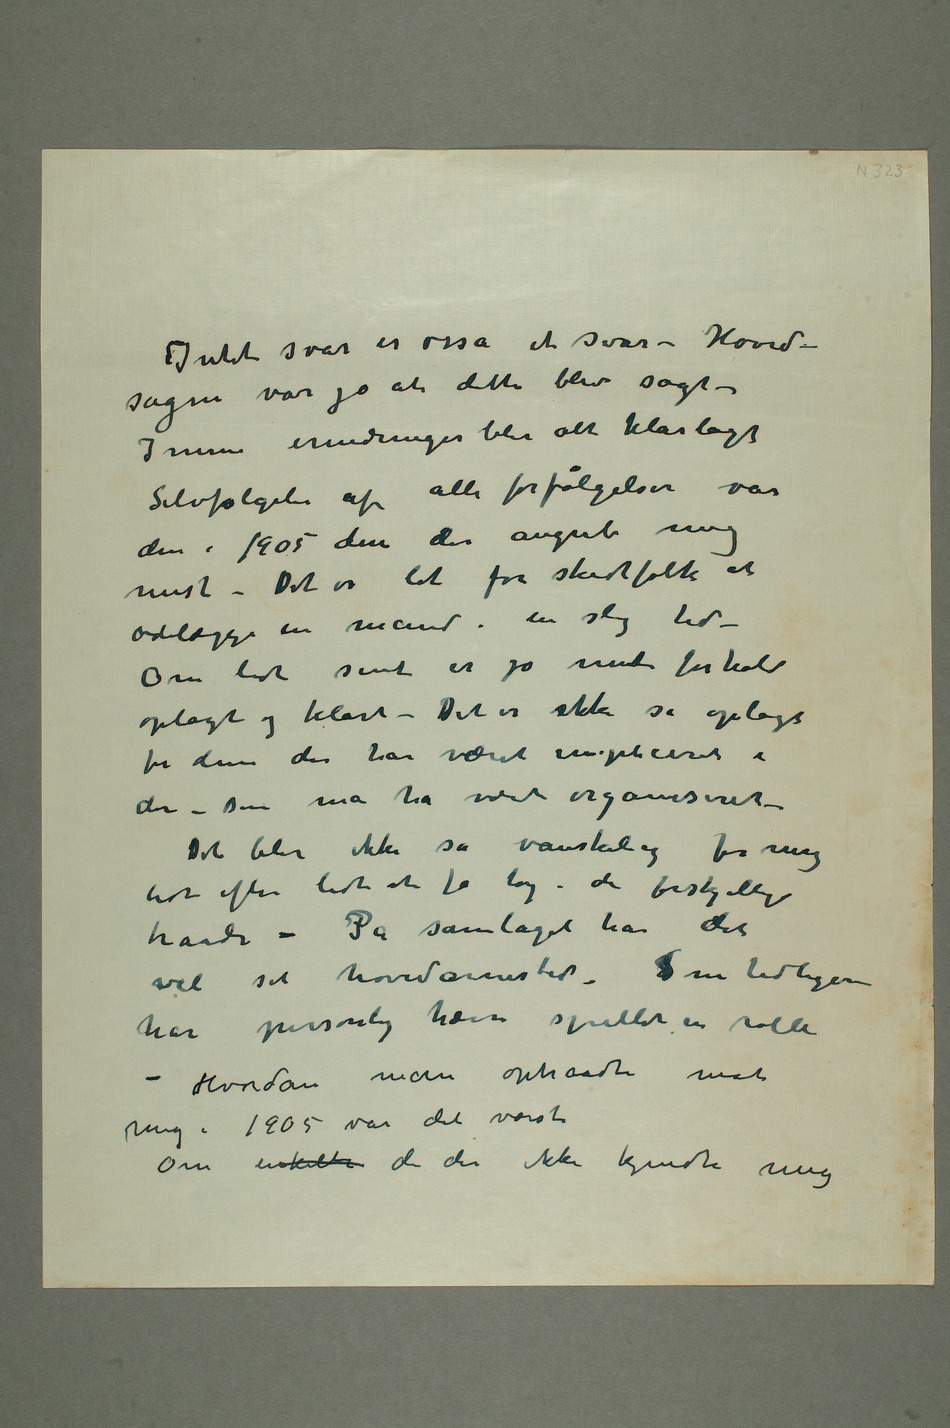 N 323
Intet svar er osså et svar – Hoved–
sagen var jo at dette blev sagt –
I mine erindringer blir alt klarlagt
Selvfølgeli af alle forfølgelser var
den i 1905 den der angreb mig
mest – Det er let for skidtfolk at
ødelægge en mand i en slig tid –
Om lidt sent er jo mit forhold
oplagt og klart – Det er ikke så oplagt
for dem der har været impliceret i
det – Den må ha været organiseret –
Det blir ikke så vanskelig for mig
lidt efter lidt at få tag i de forskjellige
traade – På samlaget har det
vel sit hovedarnested –
har personlig hævn spillet en rolle
– Hvordan man optraadte mot
mig i 1905 var det værste
Om enkelte de der ikke kjendte mig